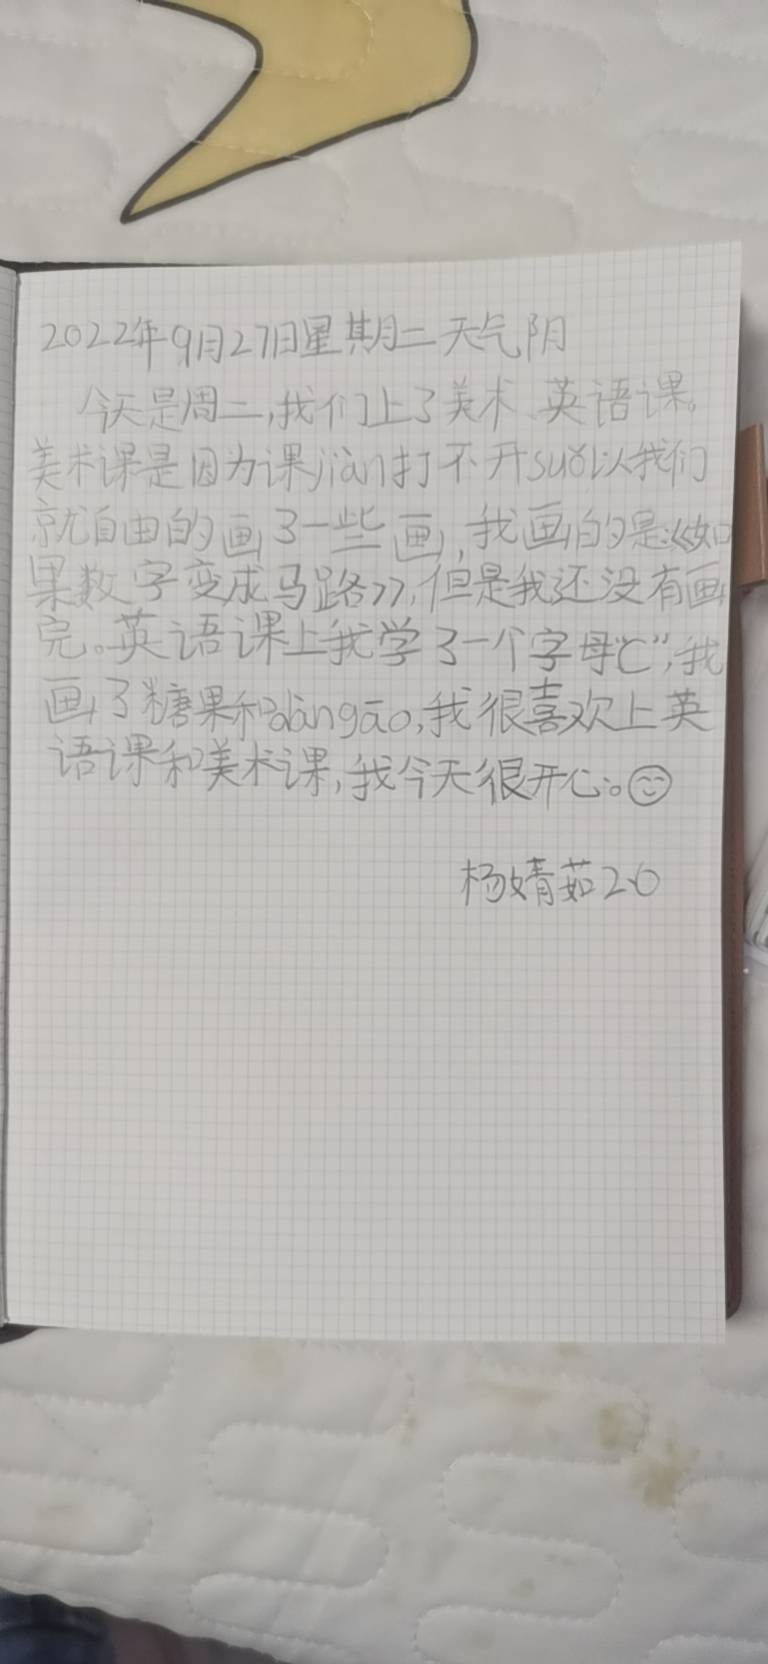 2022年9月27日星期二天气阴
今天是周二,我们上了美术、英语课。
美术课是因为课jiàn打不开suǒ以我们
就自由的画了一些画,我画的是:《如
果数字变成马路》,但是我还没有画
完。英语课上我学了一个字母"C",我
画了糖果和dàngāo,我很喜欢上英
语课和美术课,我今天很开心。
杨婧茹26